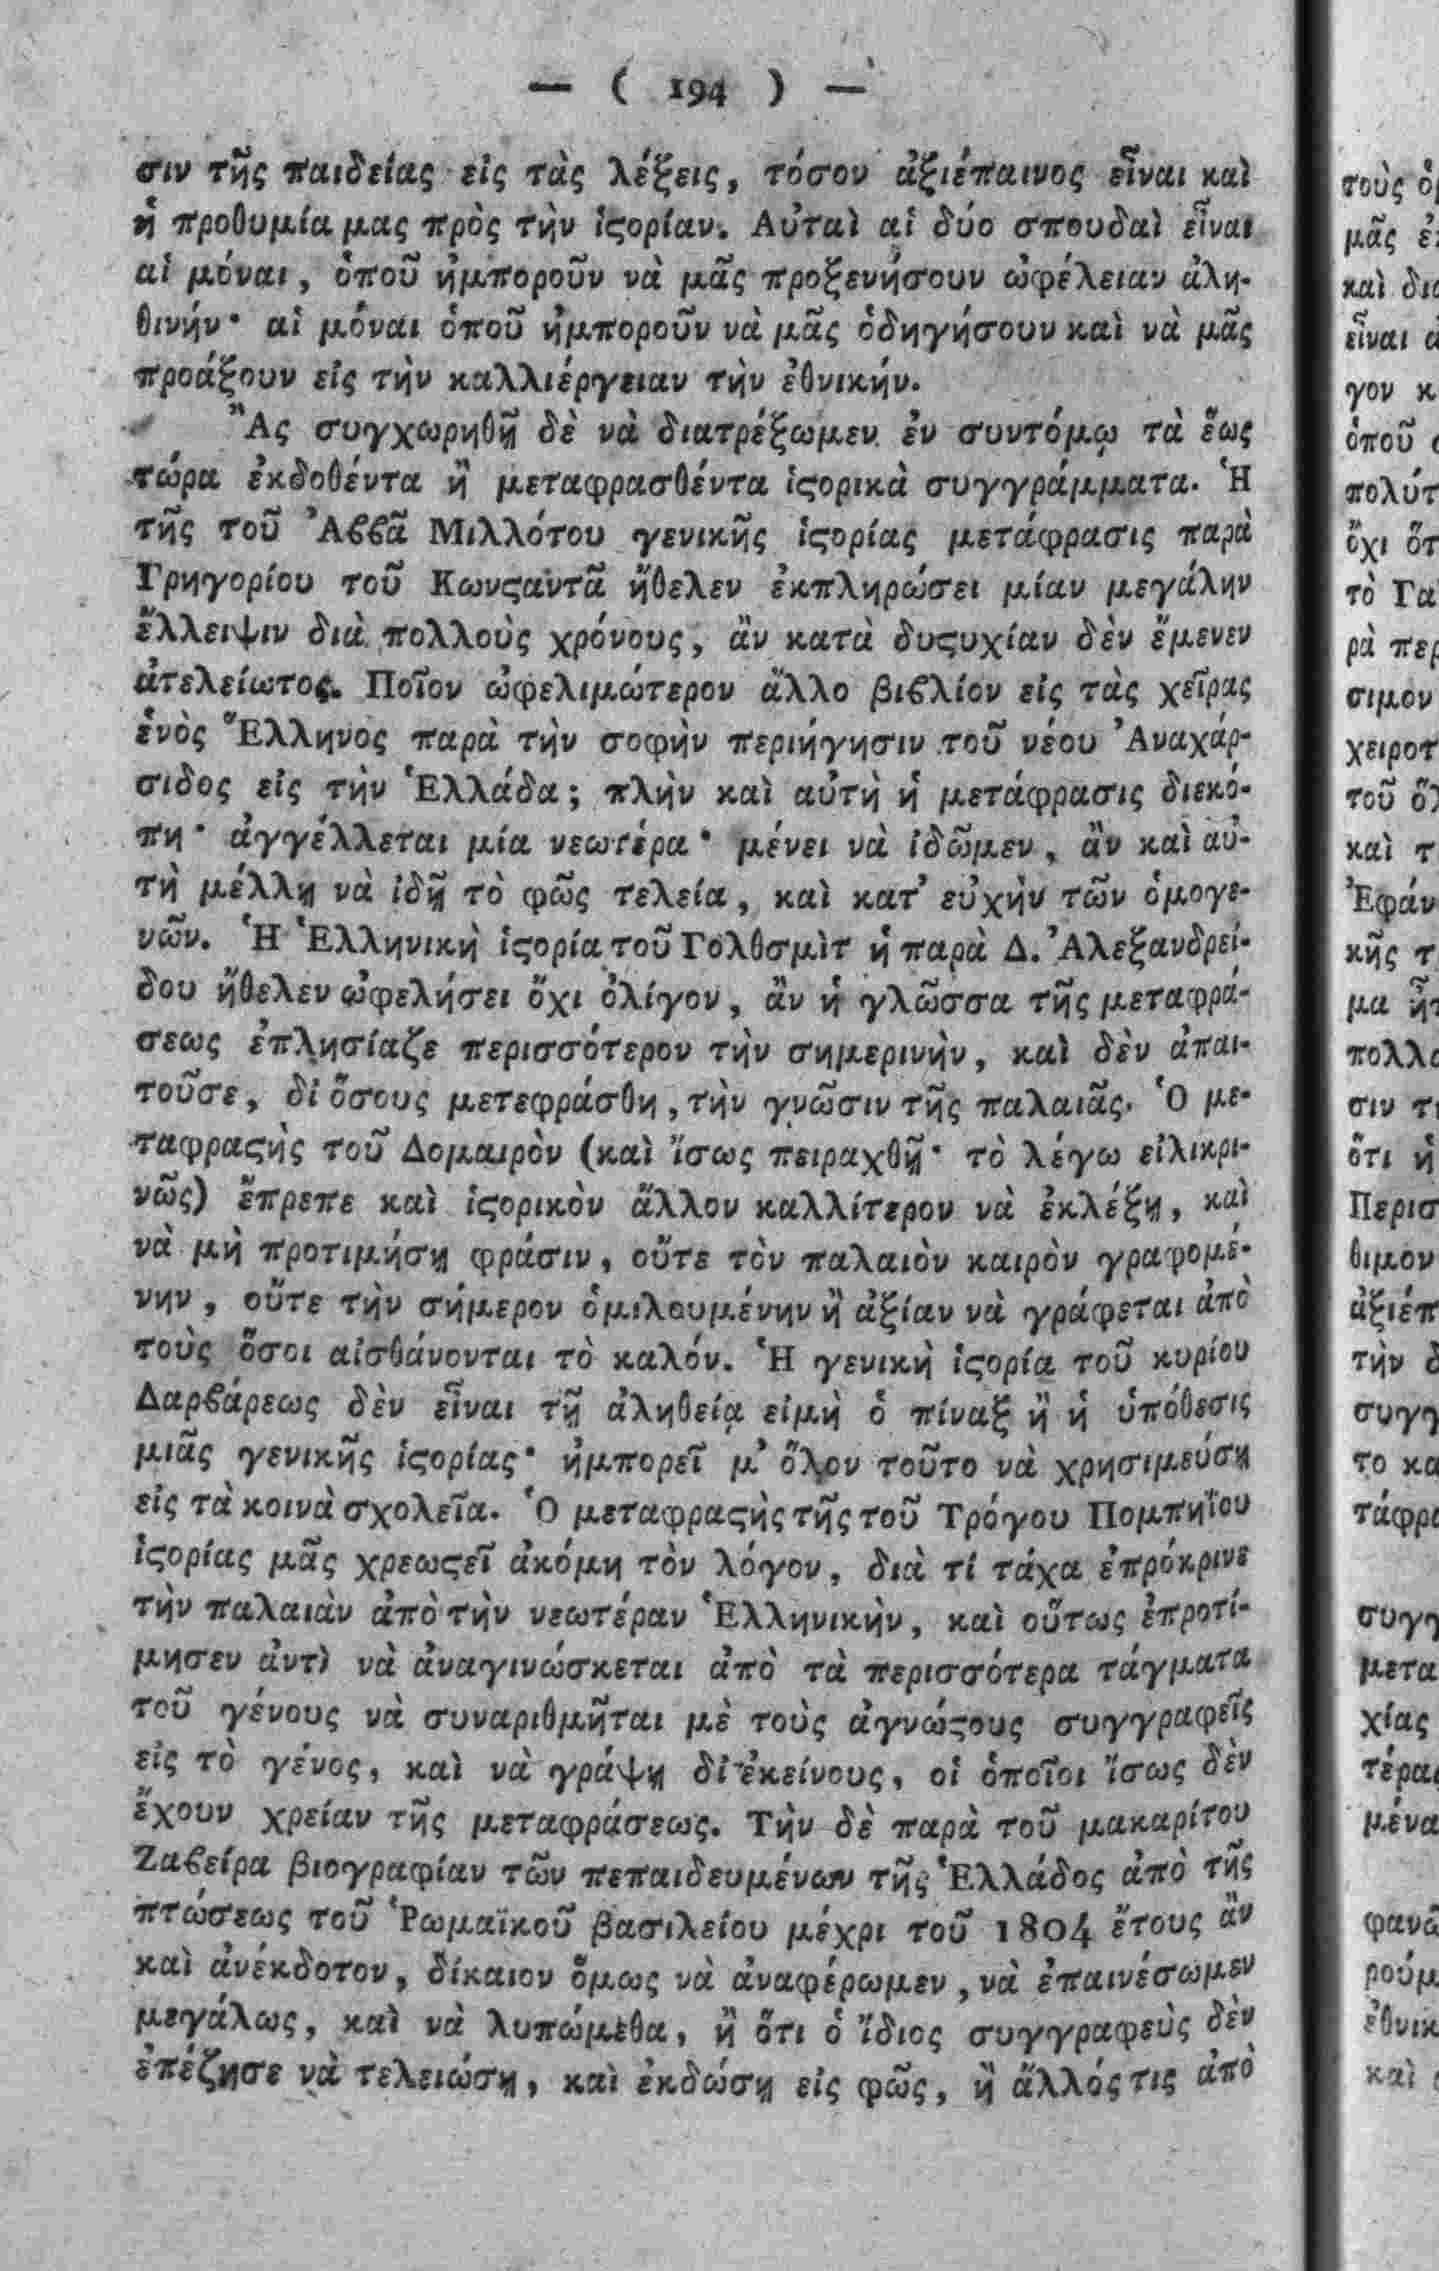 — ( 194 ) —
σιν τῆς παιδείας εἰς τὰς λέξεις, τόσον ἀξιέπαινος εἶναι καὶ
ἡ προθυμία μας πρὸς τὴν ἱϛορίαν. Αὐταὶ αἱ δύο σπουδαὶ εἶναι
αἱ μόναι, ὁποῦ ἠμποροῦν νὰ μᾶς προξενήσουν ὠφέλειαν ἀλη-
θινήν· αἱ μόναι ὁποῦ ἠμποροῦν νὰ μᾶς ὁδηγήσουν καὶ νὰ μᾶς
προάξουν εἰς τὴν καλλιέργειαν τὴν ἐθνικήν.
Ἂς συγχωρηθῇ δὲ νὰ διατρέξωμεν ἐν συντόμῳ τὰ ἕως
τώρα ἐκδοθέντα ἢ μεταφρασθέντα ἱϛορικὰ συγγράμματα. Ἡ
τῆς τοῦ Ἀϐϐᾶ Μιλλότου γενικῆς ἱϛορίας μετάφρασις παρὰ
Γρηγορίου τοῦ Κωνϛαντᾶ ἤθελεν ἐκπληρώσει μίαν μεγάλην
ἔλλειψιν διὰ πολλοὺς χρόνους, ἂν κατὰ δυϛυχίαν δὲν ἔμενεν
ἀτελείωτος. Ποῖον ὠφελιμώτερον ἄλλο βιϐλίον εἰς τὰς χεῖρας
ἑνὸς Ἕλληνος παρὰ τὴν σοφὴν περιήγησιν τοῦ νέου Ἀναχάρ-
σιδος εἰς τὴν Ἑλλάδα; πλὴν καὶ αὐτὴ ἡ μετάφρασις διεκό-
πη· ἀγγέλλεται μία νεωτέρα· μένει νὰ ἰδῶμεν, ἂν καὶ αὐ-
τὴ μέλλῃ νὰ ἰδῇ τὸ φῶς τελεία, καὶ κατ’ εὐχὴν τῶν ὁμογε-
νῶν. Ἡ Ἑλληνικὴ ἱϛορία τοῦ Γολθσμὶτ ἡ παρὰ Δ. Ἀλεξανδρεί-
δου ἤθελεν ὠφελήσει ὄχι ὀλίγον, ἂν ἡ γλῶσσα τῆς μεταφρά-
σεως ἐπλησίαζε περισσότερον τὴν σημερινὴν, καὶ δὲν ἀπαι-
τοῦσε, δἰ ὅσους μετεφράσθη, τὴν γνῶσιν τῆς παλαιᾶς. Ὁ με-
ταφραϛὴς τοῦ Δομαιρὸν (καὶ ἴσως πειραχθῇ· τὸ λέγω εἰλικρι-
νῶς) ἔπρεπε καὶ ἱϛορικὸν ἄλλον καλλίτερον νὰ ἐκλέξῃ, καὶ
νὰ μὴ προτιμήσῃ φράσιν, οὔτε τὸν παλαιὸν καιρὸν γραφομέ-
νην, οὔτε τὴν σήμερον ὁμιλουμένην ἢ ἀξίαν νὰ γράφεται ἀπὸ
τοὺς ὅσοι αἰσθάνονται τὸ καλόν. Ἡ γενικὴ ἱϛορία τοῦ κυρίου
Δαρϐάρεως δὲν εἶναι τῇ ἀληθείᾳ εἰμὴ ὁ πίναξ ἢ ἡ ὑπόθεσις
μιᾶς γενικῆς ἱϛορίας· ἠμπορεῖ μ’ ὅλον τοῦτο νὰ χρησιμεύσῃ
εἰς τὰ κοινὰ σχολεῖα. Ὁ μεταφραϛὴς τῆς τοῦ Τρόγου Πομπηΐου
ἱϛορίας μᾶς χρεωϛεῖ ἀκόμη τὸν λόγον, διὰ τί τάχα ἐπρόκρινε
τὴν παλαιὰν ἀπὸ τὴν νεωτέραν Ἑλληνικὴν, καὶ οὕτως ἐπροτί-
μησεν ἀντὶ νὰ ἀναγινώσκεται ἀπὸ τὰ περισσότερα τάγματα
τοῦ γένους νὰ συναριθμῆται μὲ τοὺς ἀγνώϛους συγγραφεῖς
εἰς τὸ γένος, καὶ νὰ γράψῃ δἰ ἐκείνους, οἱ ὁποῖοι ἴσως δὲν
ἔχουν χρείαν τῆς μεταφράσεως. Τὴν δὲ παρὰ τοῦ μακαρίτου
Ζαϐείρα βιογραφίαν τῶν πεπαιδευμένων τῆς Ἑλλάδος ἀπὸ τῆς
πτώσεως τοῦ Ῥωμαϊκοῦ βασιλείου μέχρι τοῦ 1804 ἔτους ἂν
καὶ ἀνέκδοτον, δίκαιον ὅμως νὰ ἀναφέρωμεν, νὰ ἐπαινέσωμεν
μεγάλως, καὶ νὰ λυπώμεθα, ἢ ὅτι ὁ ἴδιος συγγραφεὺς δὲν
ἐπέζησε νὰ τελειώσῃ, καὶ ἐκδώσῃ εἰς φῶς, ἢ ἄλλός τις ἀπὸ